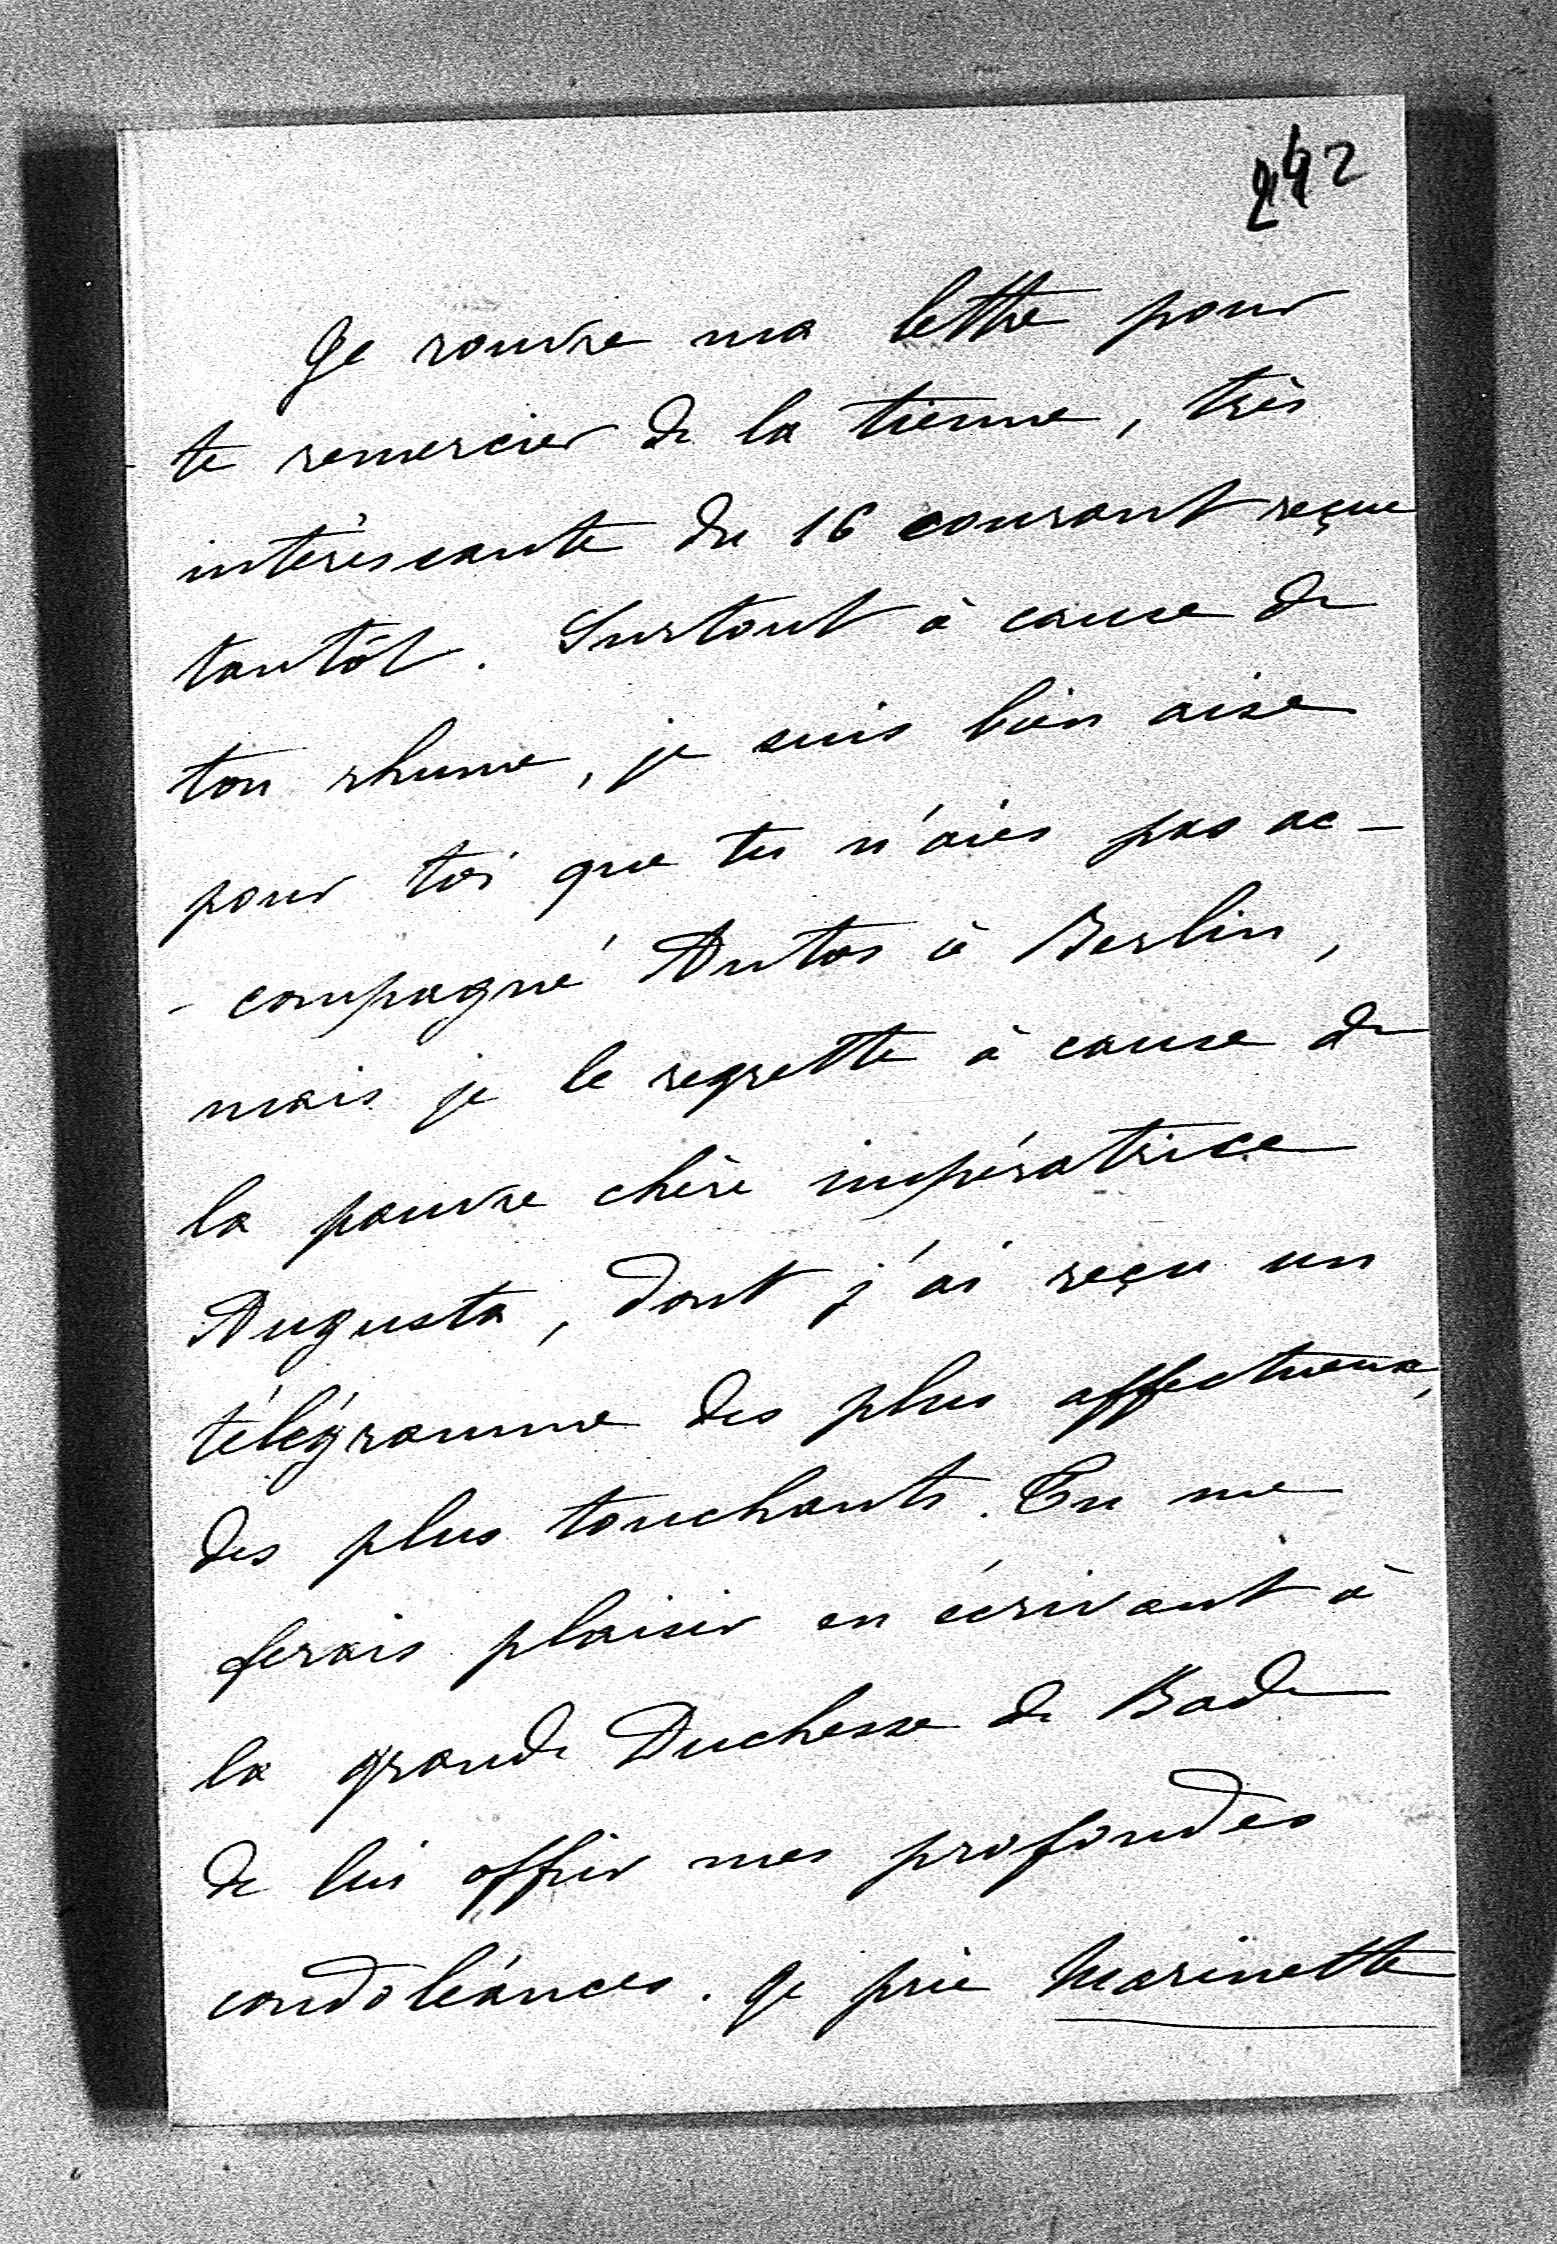 242
Je rouvre ma lettre pour
te remercier de la tienne, très
intéressante du 16 courant reçue
tantôt. Surtout à cause de
ton rhume, je suis bien aise
pour toi que tu n'aies pas ac-
-compagné Antos à Berlin,
mais je le regrette à cause de
la pauvre chère impératrice
Augusta, dont j'ai reçu un
télégramme des plus affectueux,
des plus touchants. Tu me
ferais plaisir en écrivant à
la grande Duchesse de Bade
de lui offrir mes profondes
condoléances. Je prie Marinette